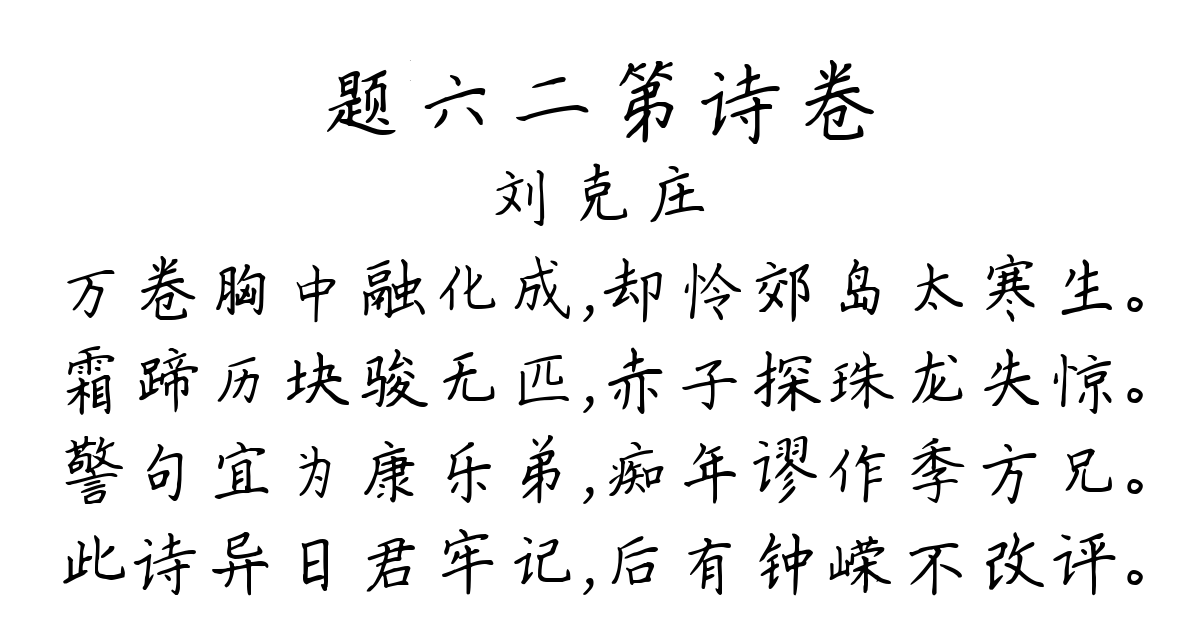 题六二第诗卷
刘克庄
万卷胸中融化成,却怜郊岛太寒生。
霜蹄历块骏无匹,赤子探珠龙失惊。
警句宜为康乐弟,痴年谬作季方兄。
此诗异日君牢记,后有钟嵘不改评。